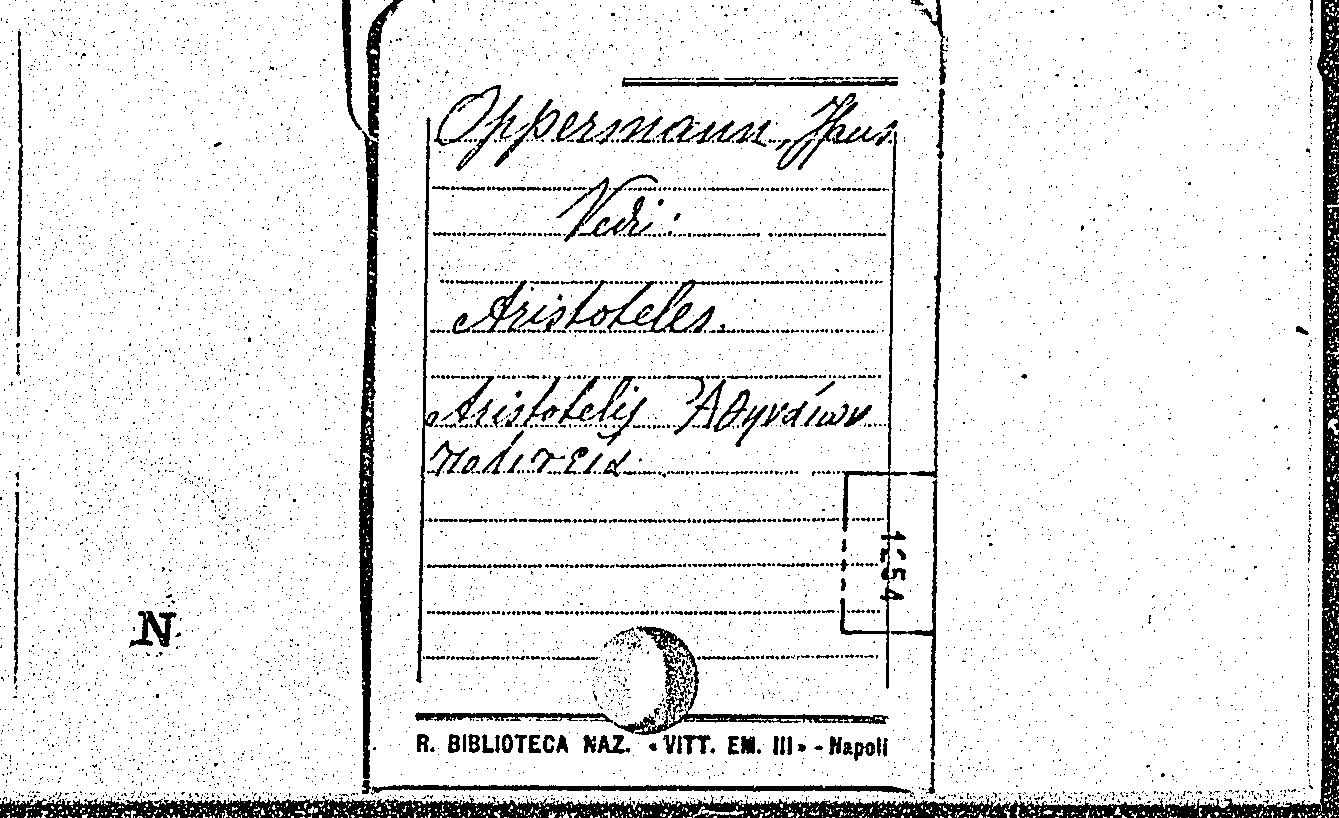 Oppermann, Hans
Vedi:
Aristoteles.
Aristotelis Ἀθηναίων
πολιτεία.
1254
N
R. BIBLIOTECA NAZ. «VITT. EM. III» - Napoli